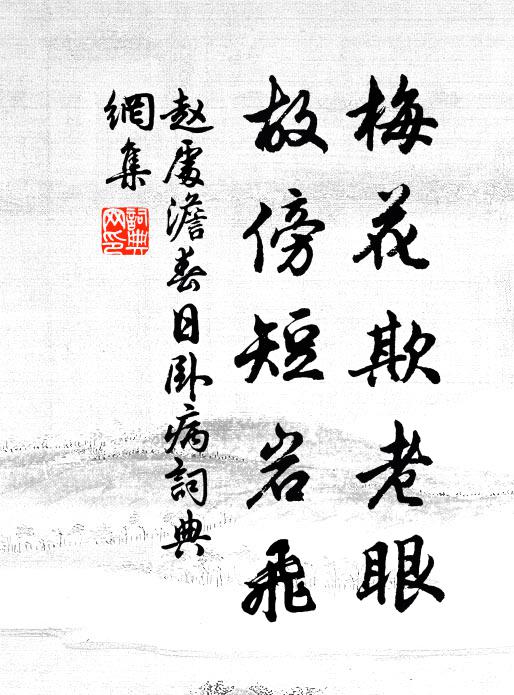 梅花欺老眼
故傍短岩飛
赵處澹春日卧病詞典
網集
詞典
网印